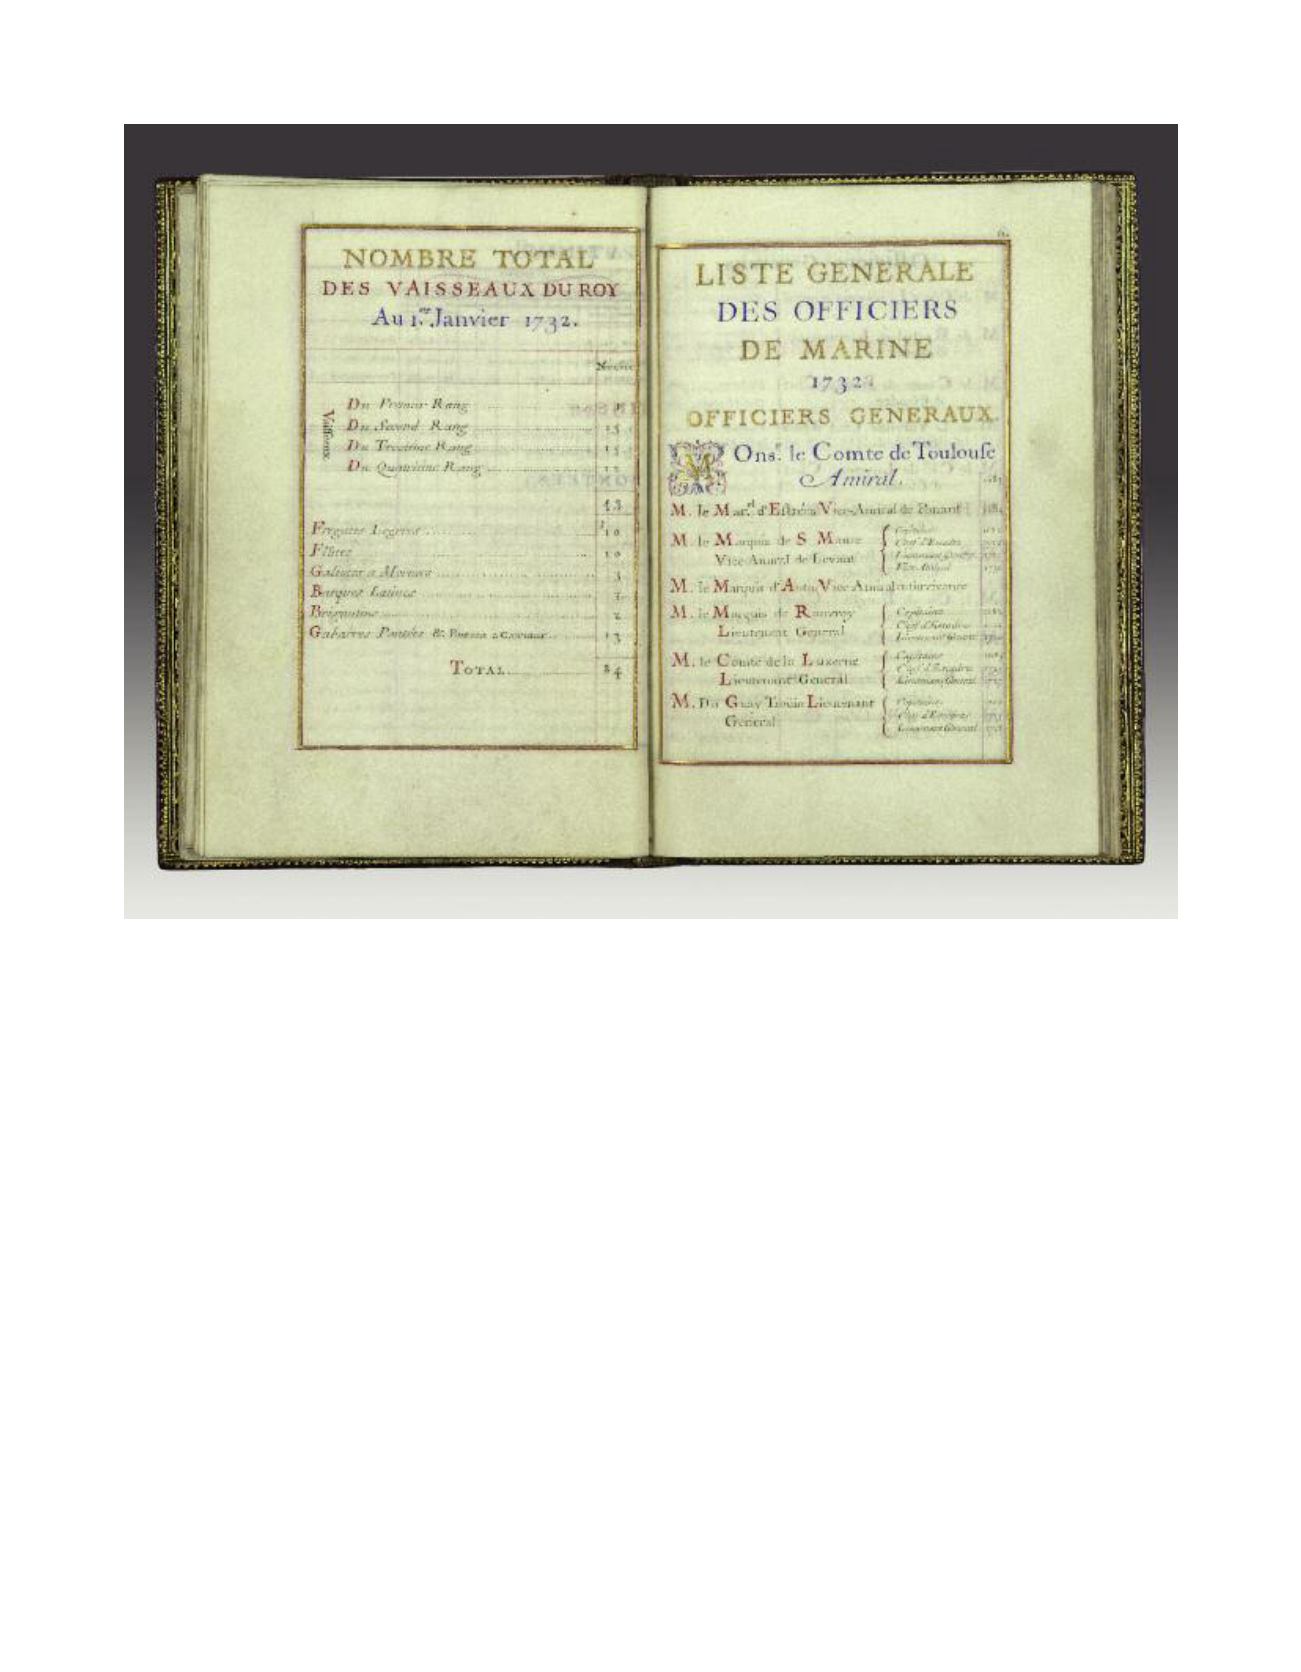 NOMBRE TOTAL
DES VAISSEAUX DU ROY
Au 1.er Janvier 1732.
Vaisseaux
Du Premier Rang
Du Second Rang 15
Du Troisième Rang 15
Du Quatrième Rang 12
Fregates Legeres 10
Flûtes 10
Galiotes a Mortiers 3
Barques Latines
Brigantins 2
Gabarres Pontées & 13
TOTAL 84
LISTE GENERALE
DES OFFICIERS
DE MARINE
1732
OFFICIERS GENERAUX.
MOnsr. le Comte de Toulouse
Amiral.
M. le Mar.el d'Estrées Vice-Amiral de Ponant
M. le Marquis de S
Vice Amiral de Levant
Capitaine
Chef d'Escadre
Lieutenant General
Vice Amiral
M. le Marquis d'Antin Vice Amiral
M. le Marquis de
Lieutenant General
Capitaine
Chef d'Escadre
Lieutenant General
M. le Comte de la Luzerne
Lieutenant General
Capitaine
Chef d'Escadre
Lieutenant General
M. Du Guay Trouin Lieutenant
General
Capitaine
Chef d'Escadre
Lieutenant General